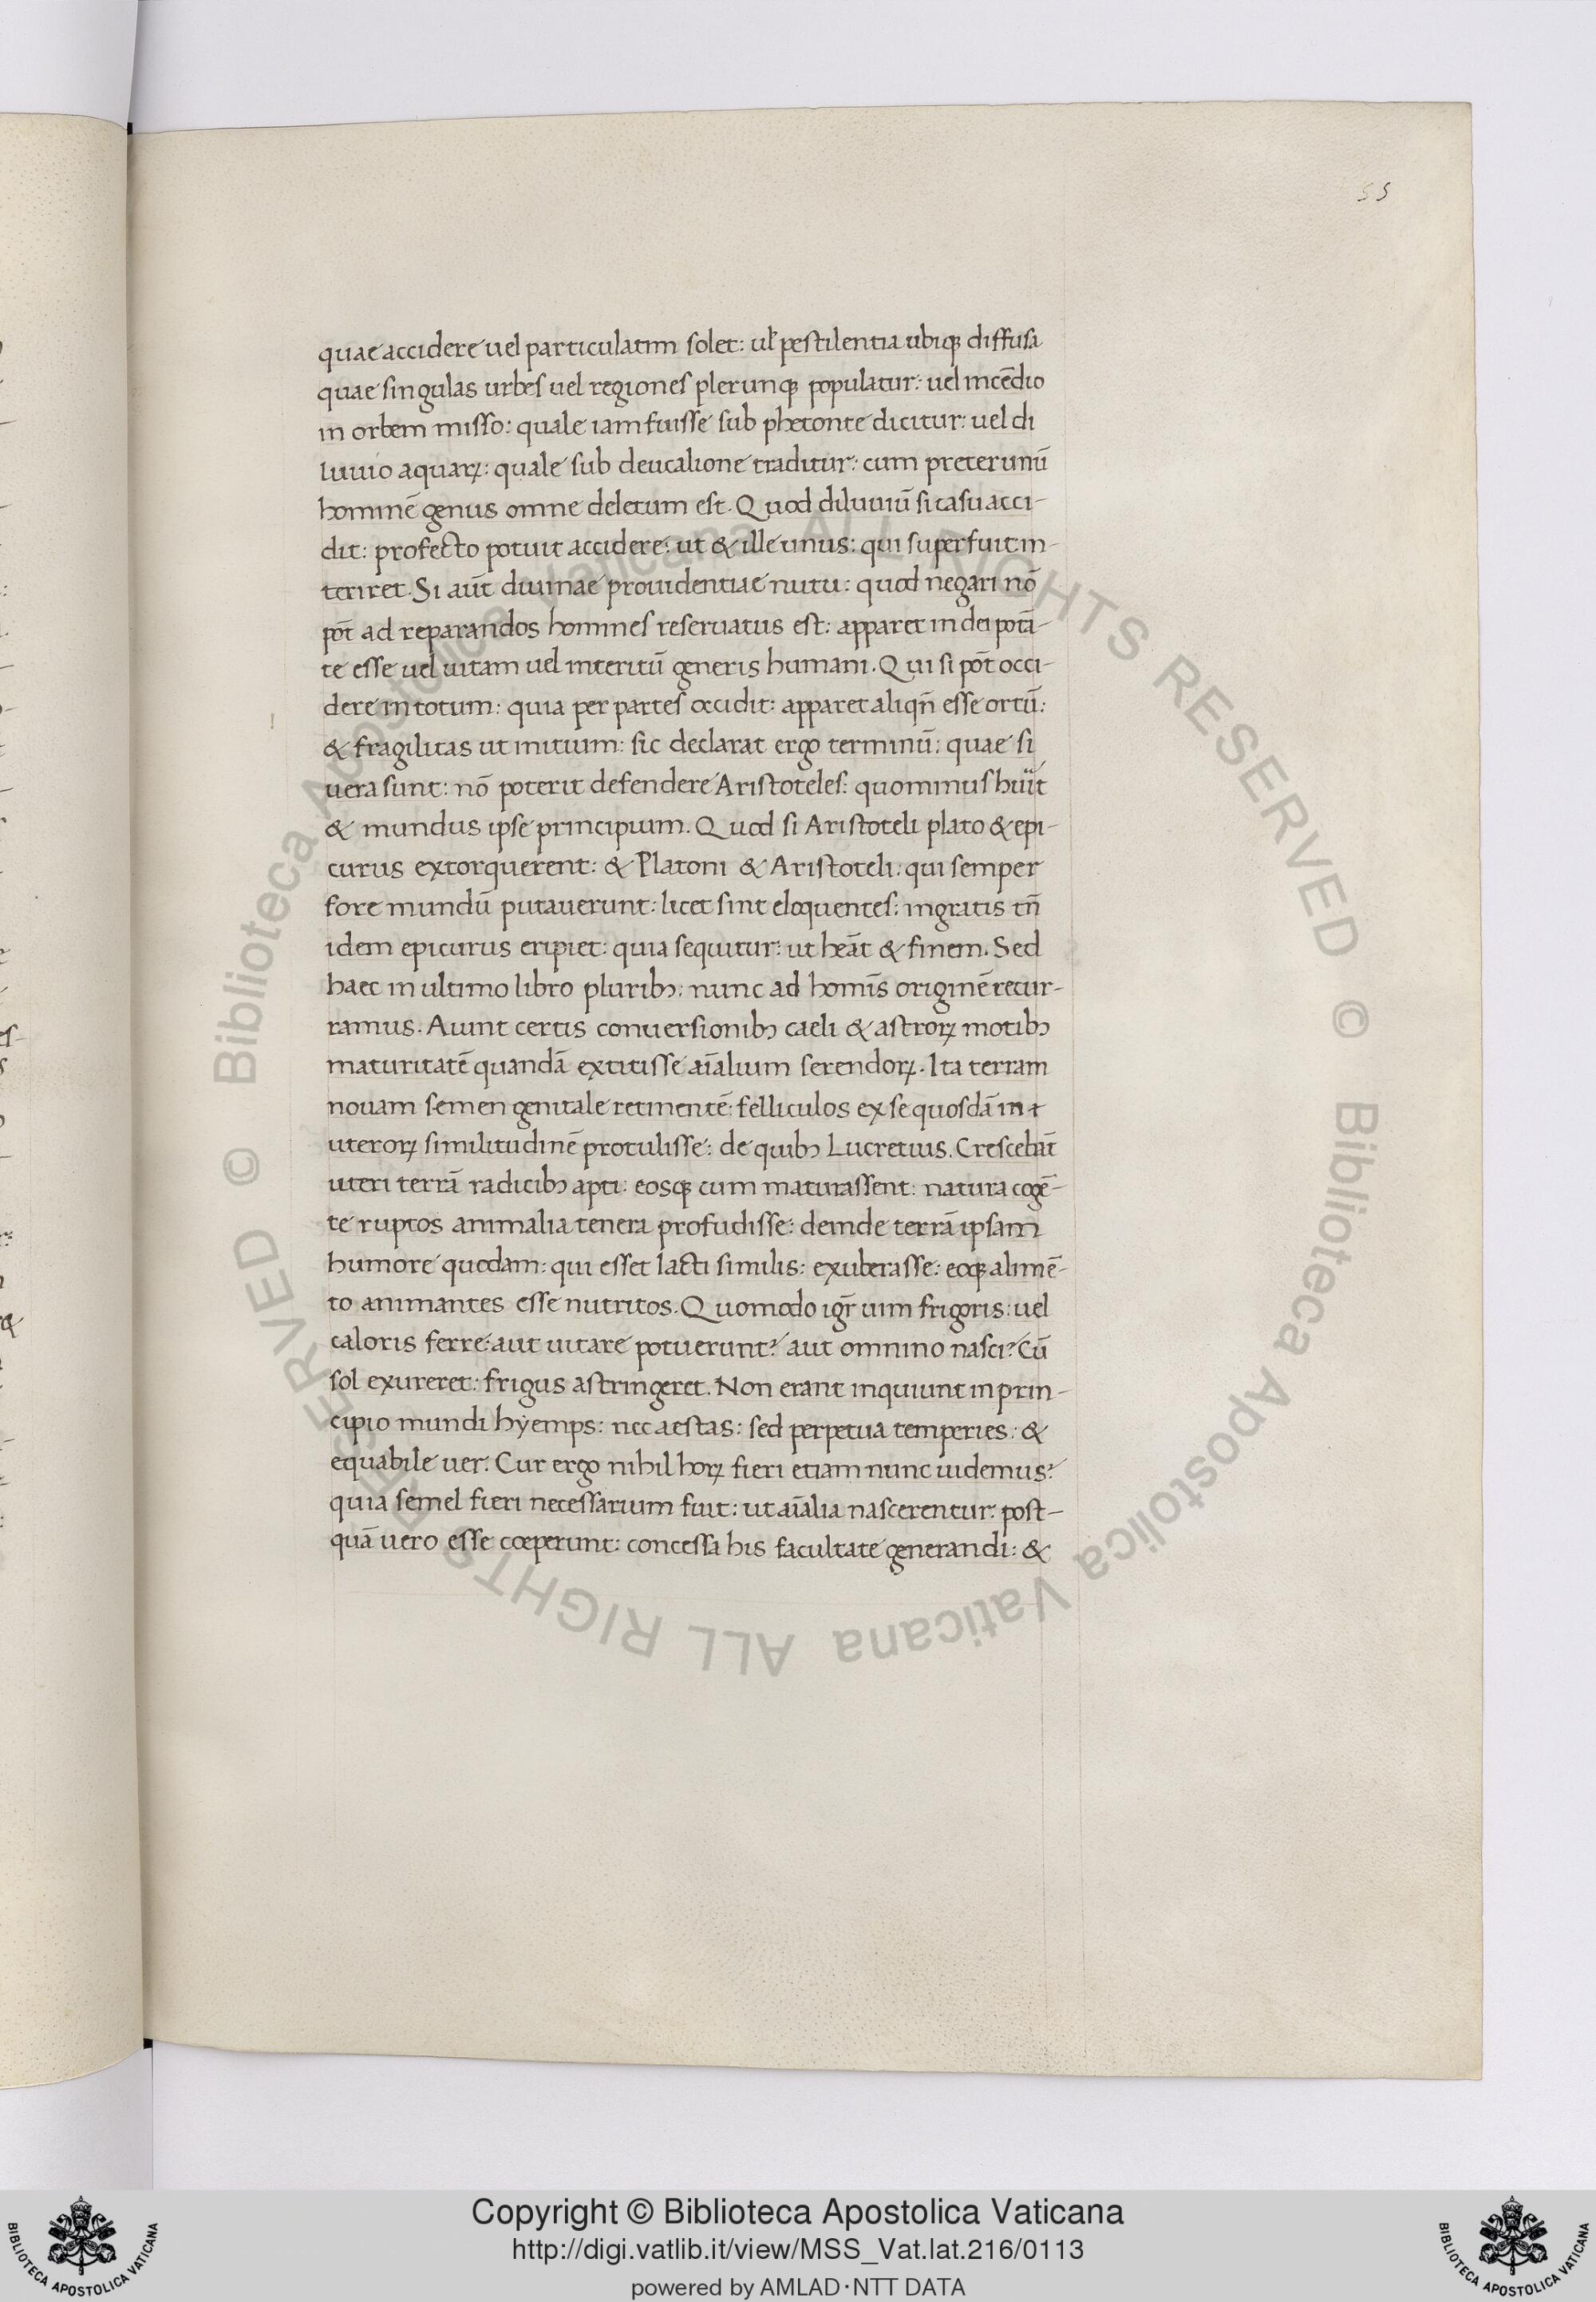 55
quae accidere uel particulatim solet: ul' pestilentia ubiqꝫ diffusa
quae singulas urbes uel regiones plerunqꝫ populatur: uel incẽdio
in orbem misso: quale iam fuisse sub phetonte dicitur: uel di
luuio aquaꝝ: quale sub deucalione traditur: cum preter unũ
hominẽ genus omne deletum est. Quod diluuiũ si casu acci-
dit: profecto potuit accidere: ut & ille unus: qui superfuit in-
teriret. Si aut̃ diuinae prouidentiae nutu: quod negari nõ
põt ad reparandos homines reseruatus est: apparet in dei potã-
te esse uel uitam uel interitũ generis humani. Qui si põt occi-
dere in totum: quia per partes occidit: apparet aliqñ esse ortũ:
& fragilitas ut initium: sic declarat ergo terminũ: quae si
uera sunt: nõ poterit defendere Aristoteles: quominus hũit
& mundus ipse principium. Quod si Aristoteli plato & epi-
curus extorquerent: & Platoni & Aristoteli: qui semper
fore mundũ putauerunt: licet sint eloquentes: ingratis tñ
idem epicurus eripiet: quia sequitur: ut heãt & finem. Sed
haec in ultimo libro pluribꝰ: nunc ad homĩs originẽ recur-
ramus. Aiunt certis conuersionibꝰ caeli & astroꝝ motibꝰ
maturitatẽ quandã extitisse aĩalium serendoꝝ. Ita terram
nouam semen genitale retinentẽ: felliculos ex se quosdã in
uteroꝝ similitudinẽ protulisse: de quibꝰ Lucretius. Crescebãt
uteri terrã radicibꝰ apti: eosqꝫ cum maturassent: natura cogẽ-
te ruptos animalia tenera profudisse: deinde terrã ipsam
humore quodam: qui esset lacti similis: exuberasse: eoqꝫ alimẽ-
to animantes esse nutritos. Quomodo igr̃ uim frigoris: uel
caloris ferre: aut uitare potuerunt? aut omnino nasci? Cũ
sol exureret: frigus astringeret. Non erant inquiunt in prin-
cipio mundi hẏemps: nec aestas: sed perpetua temperies: &
equabile uer. Cur ergo nihil hoꝝ fieri etiam nunc uidemus?
quia semel fieri necessarium fuit: ut aĩalia nascerentur: post-
quã uero esse cœperunt: concessa his facultate generandi: &
© Biblioteca Apostolica Vaticana ALL RIGHTS RESERVED © Biblioteca Apostolica Vaticana ALL RIGHTS RESERVED
Copyright © Biblioteca Apostolica Vaticana
http://digi.vatlib.it/view/MSS_Vat.lat.216/0113
powered by AMLAD·NTT DATA
BIBLIOTECA APOSTOLICA VATICANA
BIBLIOTECA APOSTOLICA VATICANA